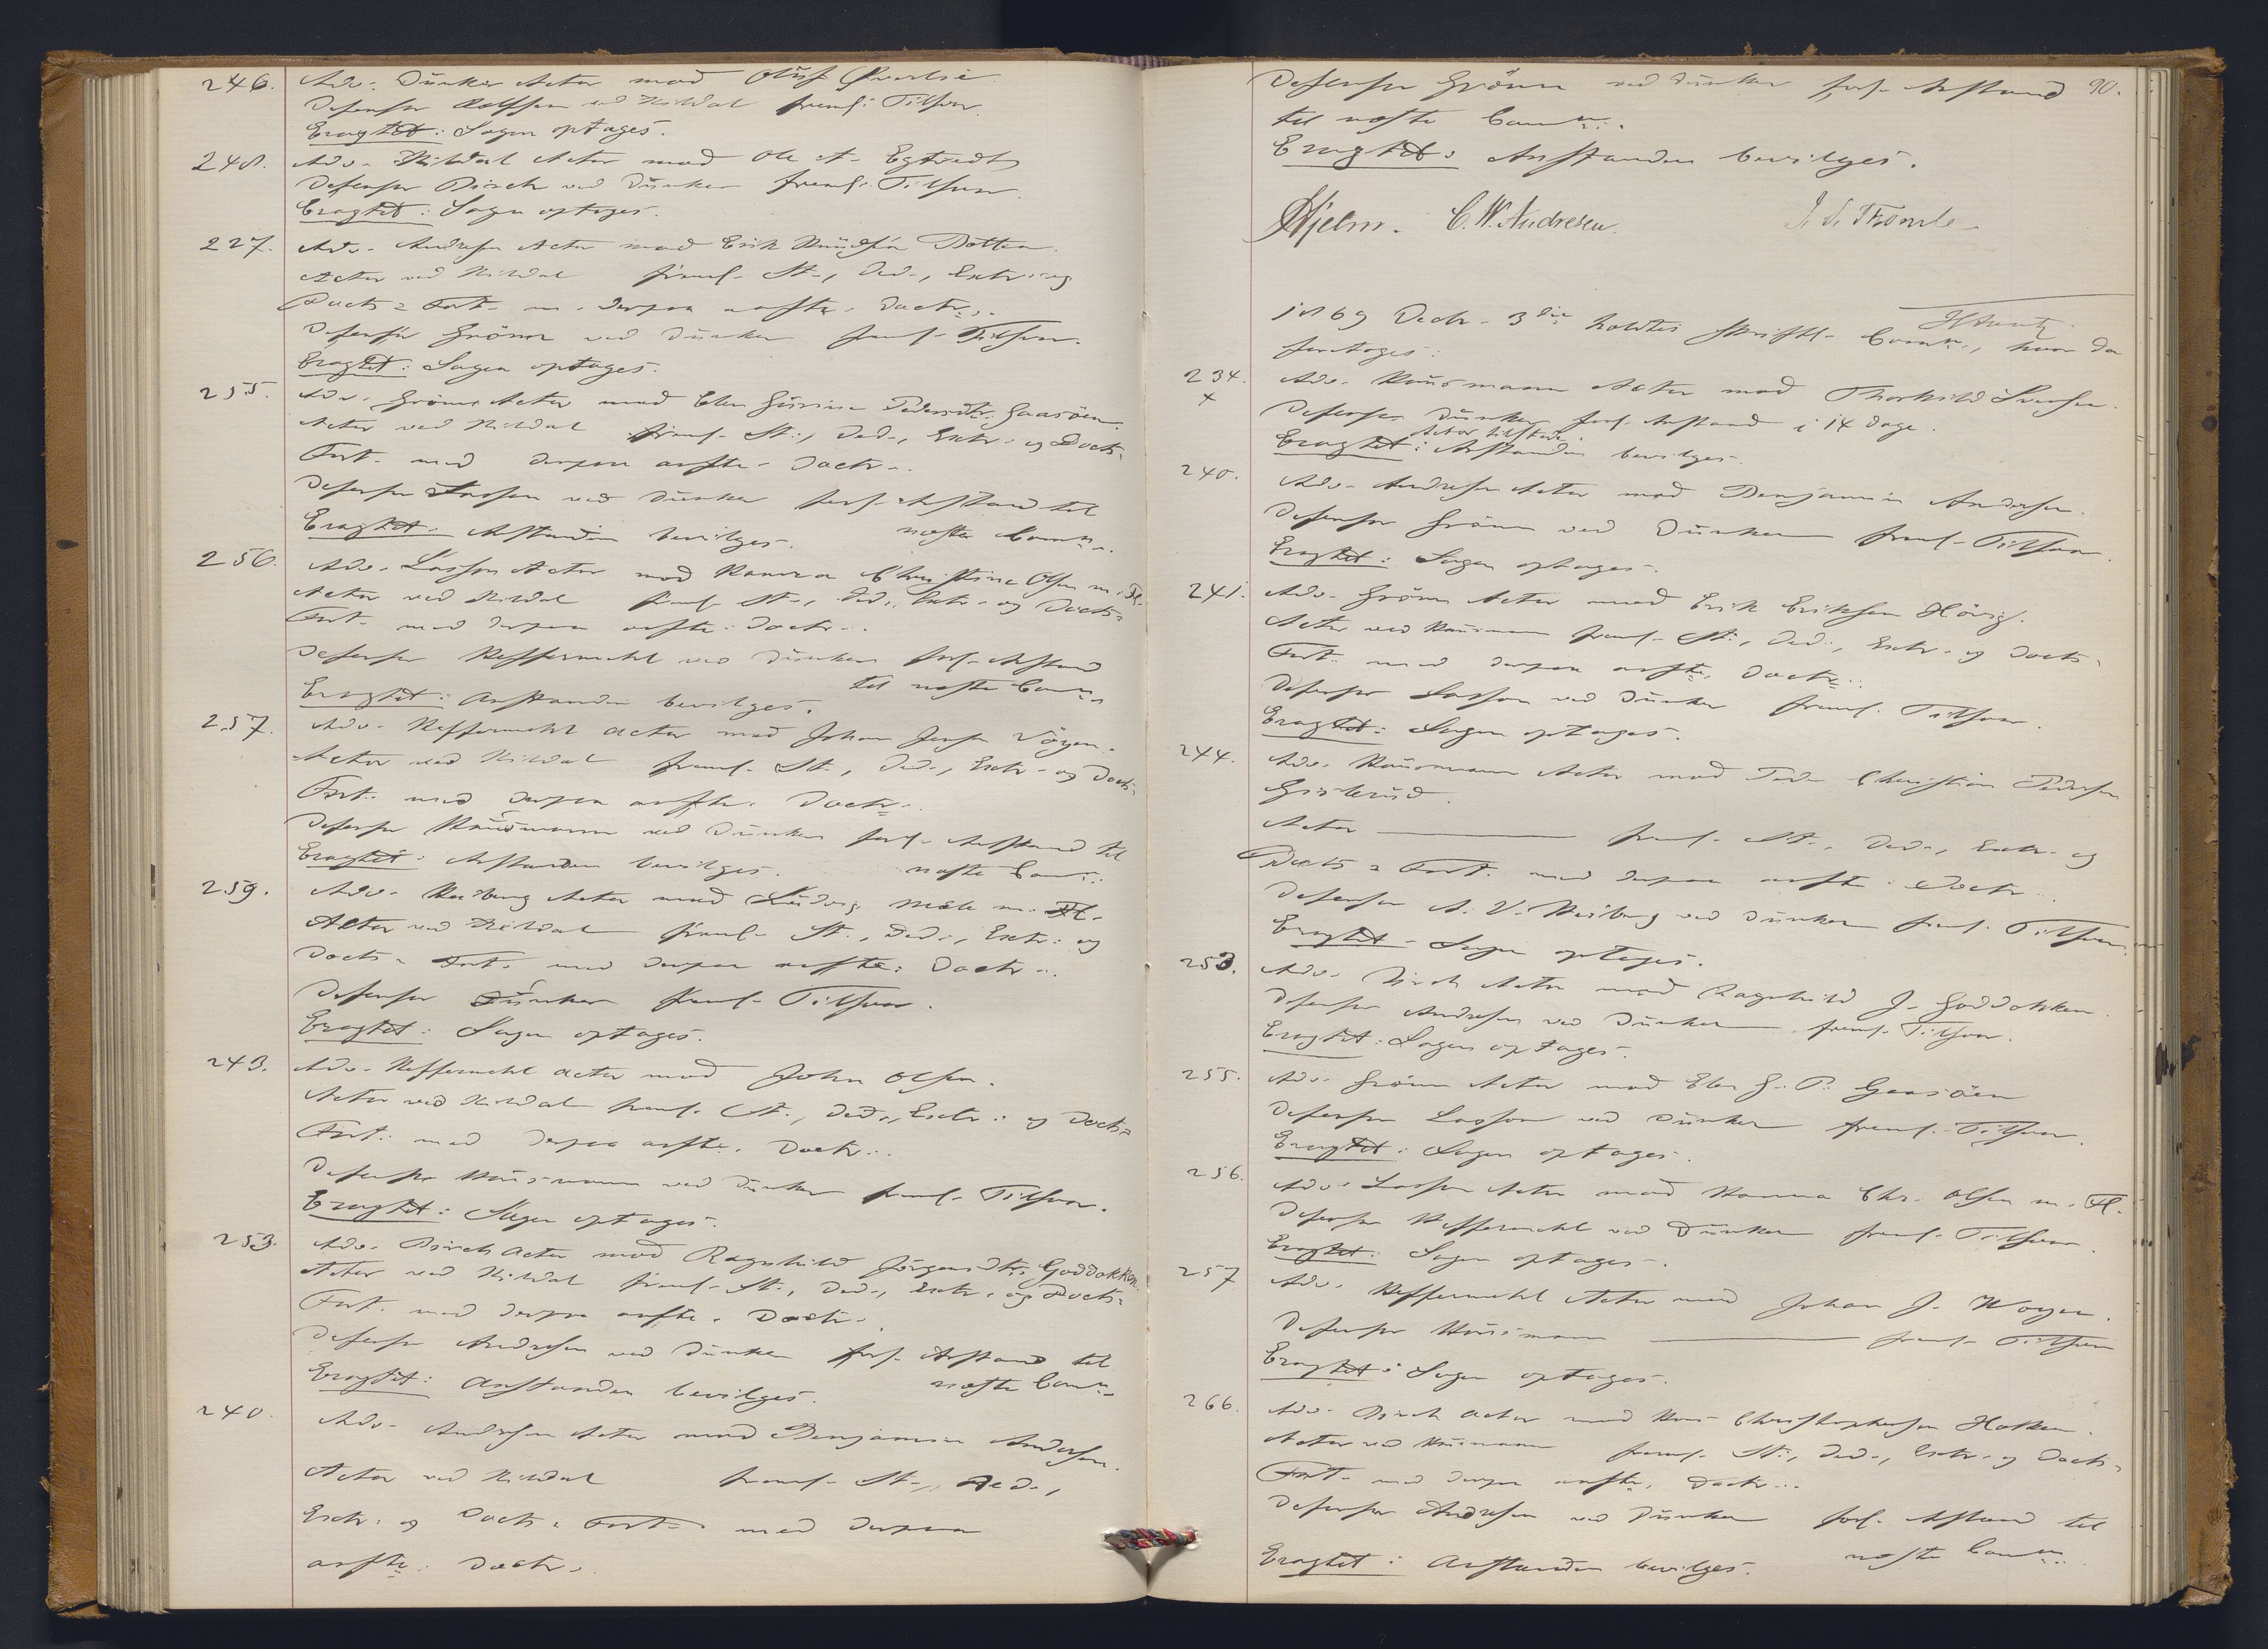 246. Adv. Dünker Actor mod Oluf Qværlie
Defensor Rolfsen ved Kildal freml. Tilsvar.
Eragtet: Sagen optages.
248. Adv. Kildal Actor mod Ole A. Egtvedt
Defensor Birch ved Dünker freml. Tilsvar.
Eragtet: Sagen optages.
227. Adv. Andresen Actor mod Erik Knudsen Botten.
Actor ved Kildal freml. St., Ded., Extr. og
Docts: Fort. m. derpaa æsktr. Doctr.
Defensor Grönn ved Dünker freml. Tilsvar.
Eragtet: Sagen optages.
255. Adv. Grönn Actor mod Elen Gurine Pedersdtr. Gaasöen.
Actor ved Kildal freml. St., Ded., Extr. og Docts:
Fort. med derpaa æskte. Doctr.
Defensor Lasson ved Dünker forl. Anstand til
Eragtet: Anstanden bevilges. næste Comn.
256. Adv. Lasson Actor mod Hanna Christine Olsen m. Fl.
Actor ved Kildal freml. St., Ded., Extr. og Docts:
Fort. med derpaa æskte. Doctr.
Defensor Heffermehl ved Dünker forl. Anstand
til næste Comn.
Eragtet: Anstanden bevilges.
257. Adv. Heffermehl Actor mod Johan Jensen Vöyen.
Actor ved Kildal freml. St., Ded., Extr. og Docts:
Fort. med derpaa æskte. Doctr.
Defensor Hausmann ved Dünker forl. Anstand til
Eragtet: Anstanden bevilges. næste Comn.
259. Adv. Heiberg Actor mod Ludvig m. Fl.
Actor ved Kildal freml. St., Ded., Extr. og
Docts: Fort. med derpaa æskte. Doctr.
Defensor Dünker freml. Tilsvar.
Eragtet: Sagen optages.
243. Adv. Heffermehl Actor mod John Olsen.
Actor ved Kildal freml. St., Ded., Extr. og Docts:
Fort. med derpaa æskte. Doctr.
Defensor Hausmann ved Dünker freml. Tilsvar.
Eragtet: Sagen optages.
253. Adv. Birch Actor mod Ragnhild Jörgensdtr. Goddokken.
Actor ved Kildal freml. St., Ded., Extr. og Docts:
Fort. med derpaa æskte. Doctr.
Defensor Andresen ved Dünker forl. Anstand til
Eragtet: Anstanden bevilges. næste Comn.
240. Adv. Andresen Actor mod Benjamin Andersen.
Actor ved Kildal freml. St., Ded.,
Extr. og Docts: Fort. med derpaa
æskte. Doctr.
Defensor Grönn ved Dünker forl. Anstand 90.
til næste Comn.
Eragtet: Anstanden bevilges.
Hjelm. C. W. Andresen. J. S. Thomle
1869 Decbr. 3die holdtes skriftl. Comn., hvor da
foretoges:
234. Adv. Hausmann Actor mod Thorkild Svensen.
x Defensor Dünker forl. Anstand i 14 Dage.
Actor tilstede
Eragtet: Anstanden bevilges.
240. Adv. Andresen Actor mod Benjamin Andersen.
Defensor Grönn ved Dünker freml. Tilsvar.
Eragtet: Sagen optages.
241. Adv. Grönn Actor mod Erik Eriksen Hövig.
Actor ved Hausmann freml. St., Ded., Extr. og Docts:
Fort. med derpaa æskte. Doctr.
Defensor Lasson ved Dünker freml. Tilsvar.
Eragtet: Sagen optages.
244. Adv. Hausmann Actor mod Peder Christian Pedersen
Gislerud.
Actor freml. St., Ded., Extr. og
Docts: Fort. med derpaa æskte. Doctr.
Defensor A. V. Heiberg ved Dünker freml. Tilsvar.
Eragtet: Sagen optages.
253. Adv. Birch Actor mod Ragnhild J. Goddokken.
Defensor Andresen ved Dünker freml. Tilsvar.
Eragtet: Sagen optages.
255. Adv. Grönn Actor mod Elen G. P. Gaasöen
Defensor Lasson ved Dünker freml. Tilsvar.
Eragtet: Sagen optages.
256. Adv. Lasson Actor mod Hanna Chr. Olsen m. Fl.
Defensor Heffermehl ved Dünker freml. Tilsvar.
Eragtet: Sagen optages.
257 Adv. Heffermehl Actor mod Johan J. Woyen.
Defensor Hausmann freml. Tilsvar
Eragtet: Sagen optages.
266. Adv. Birch Actor mod Hans Christophersen Holken.
Actor ved Hausmann freml. St., Ded., Extr. og Docts:
Fort. med derpaa æskte. Doctr.
Defensor Andresen ved Dünker forl. Anstand til
næste Comn.
Eragtet: Anstanden bevilges.